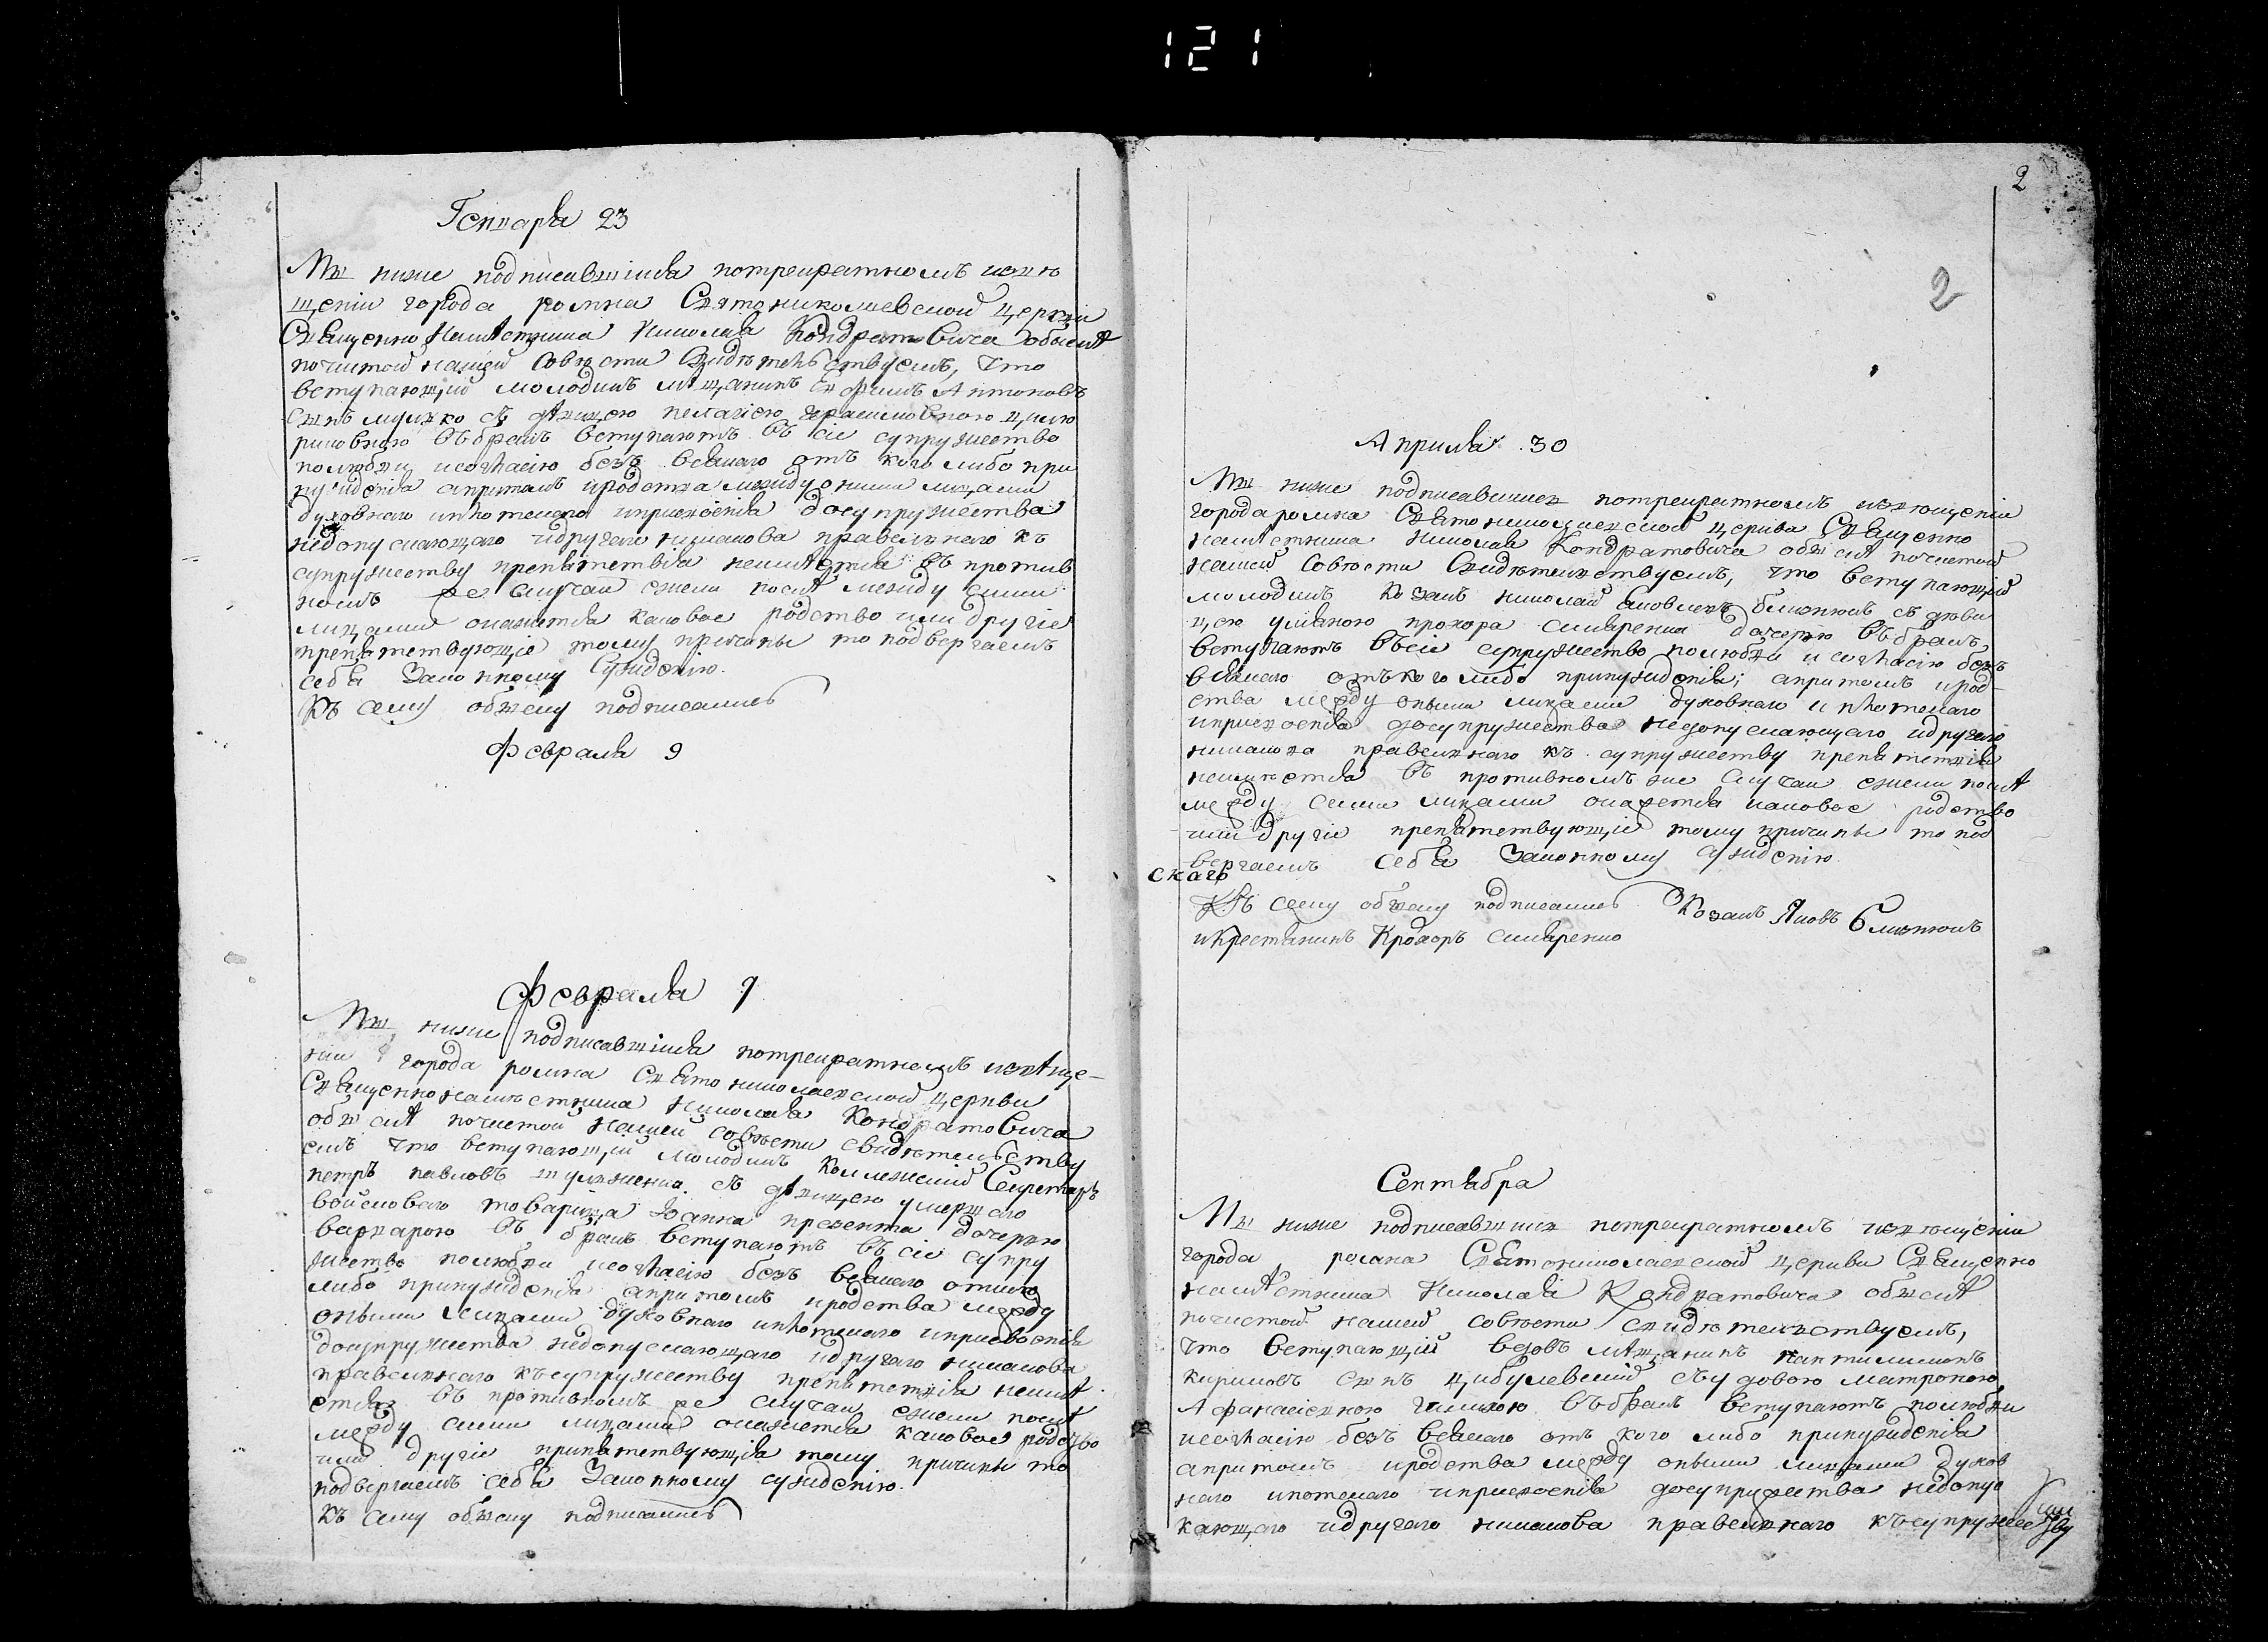 121
Генваря 23
Мы ниже подписавшіися потрецратномъ извѣ
щеніи города ромна Святониколаевской церкви
Священно Намѣстника Николая Кондратовича обыскѣ
по чистой нашей Совѣсти Свидѣтельствуемъ, что
вступающій молодикъ мѣщанинъ Антоновъ
Сынъ съ дѣвицею пелагіею герасимовною
въ бракъ вступаютъ въ сіе супружество
по любви исогласію безъ всякаго отъ кого либо при
нужденія апритомъ иродства между оними лицами
духовнаго иплотскаго иприсвоенія досупружества
недопускающаго идругаго никакова правелнаго къ
супружеству препятствія неимѣется въ против
номъ же случаи ежели послѣ между сими
лицами окажится каковое родство или другіе
препятствующіе тому причины то подвергаемъ
себя Законному Сужденію.
Къ сему обыску подписались
Февраля 9
Февраля 9
Мы ниже подписавшіися потрецратномъ извѣще-
ніи города ромна Святониколаевской церкви
Священнонамѣстника Николая Кондратовича
обыскѣ почистой нашей совѣсти свидѣтельству
емъ что вступающій молодикъ Коллежскій Секретарь
петръ павловъ съ дѣвицею умершаго
войсковаго товарища дочерью
варварою въ бракъ вступаютъ въ сіе супру
жество полюбви исогласію безъ всякаго откого
либо принужденія апритомъ иродства между
оными лицами духовнаго иплотскаго иприсвоенія
досупружества недопускающаго идругаго никакова
правелнаго къ супружеству препятствія неимѣ
ется въ противномъ же случаи ежели послѣ
между сими лицами окажется каковое родство
или другіе припятствующія тому причины то
подвергаемъ себя Законному сужденію.
Къ сему обыску подписались
2
2
Априля 30
Мы ниже подписавшиеся потрецратномъ извѣщеніи
города ромна Святониколаевской церкви Священно
намѣстника Николая Кондратовича обыскѣ почистой
нашей Совѣсти Свидѣтельствуемъ, что вступающій
молодикъ Козакъ николай съ дѣви
цею прохора дочерью въ бракъ
вступаютъ въсіе супружество полюбви исогласію безъ
всякаго отъкого либо принужденія; апритомъ ирод-
ства между оными лицами духовнаго иплотскаго
иприсвоенія досупружества недопускающаго идругаго
никакова правелнаго къ супружеству препятствія
неимѣется въ противномъ же случаи ежели послѣ
между сими лицами окажется каковое родство
или другіе препятствующіе тому причины то под
вергаемъ себя Законному сужденію.
скаго
Къ сему обыску подписались Козакъ Яковъ
икрестянинъ Прохоръ
Сентября
Мы ниже подписавшися потрецратномъ извѣщеніи
города ромна Святониколаевской церкви Священно
намѣстника Николая Кондратовича обыскѣ
почистой нашей совѣсти свидѣтельствуемъ,
что вступающій вдовъ мѣщанинъ пантилимонъ
кириловъ сынъ цибулевскій съвдовою матроною
Афанасіевною въ бракъ вступаютъ полюбви
исогласію безъ всякаго отъ кого либо принужденія
апритомъ иродства между оными лицами духов
наго иплотскаго иприсвоенія досупружества недопус
кающаго идругаго никакова правелнаго къ супружеству